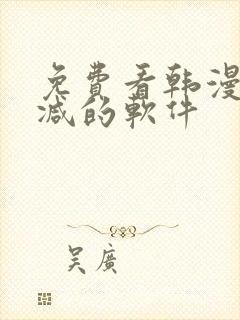 免費看韩漫
减的軟件
吴廣